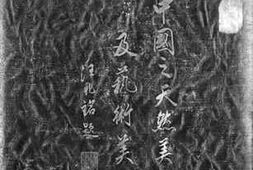 中國之天然美
及藝術美
汪孔祁題